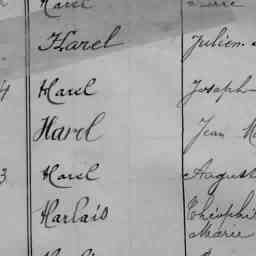 Harel
Harel Julien
4 Harel Joseph
Harel Jean
3 Harel August
Harlais Théophi
Marie